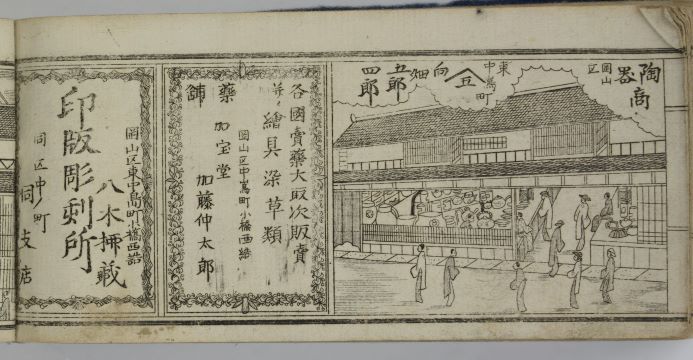 陶商
器
岡山
区
東
中嶌町
仝
向畑
五郎
四郎
各國賣藥大取次販賣
並ニ繪具染草類
岡山区中嶌町小橋西詰
藥
舗
加宝堂
加藤仲太郎
岡山区東中島町小橋西詰
印版彫刻所
八木
藏
同区中ノ町
同支店